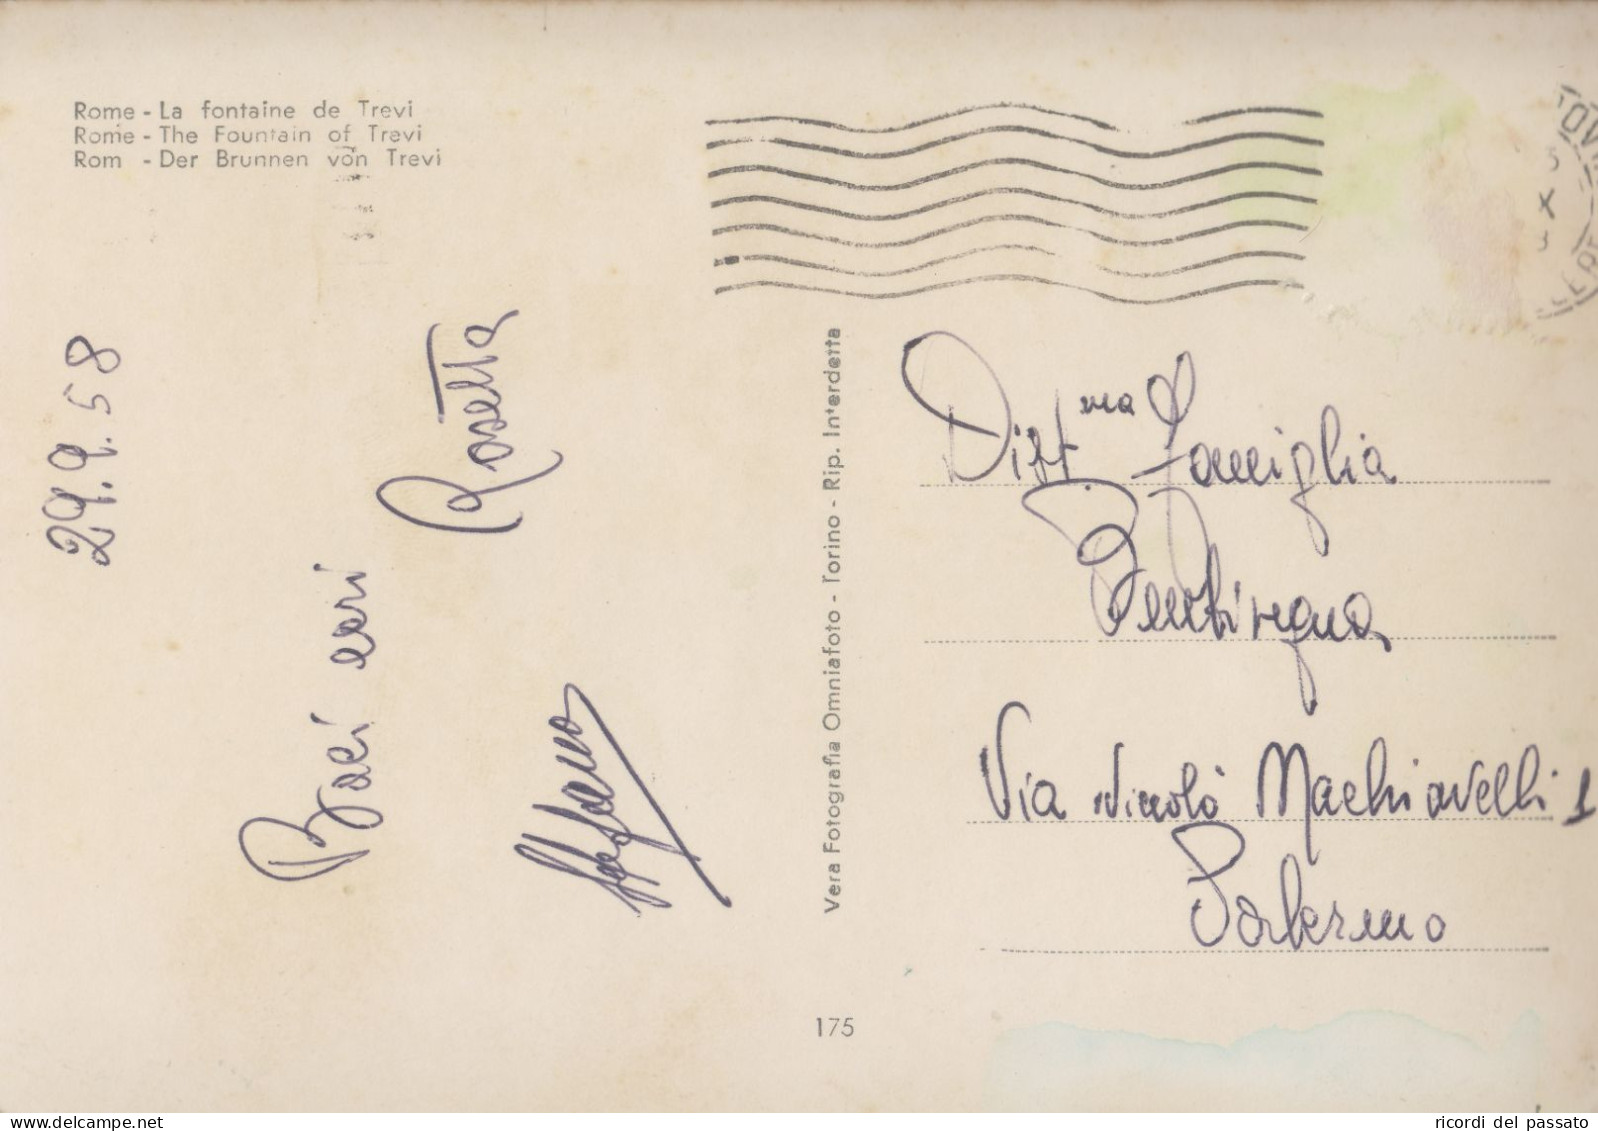 Rome - La fontaine de Trevi
Rome - The Fountain of Trevi
Rom - Der Brunnen von Trevi
29.9.58
Baci cari
Rosetta
Stefano
Vera Fotografia Omniafoto - Torino - Rip. Interdetta
Distma Famiglia
Via Niccolò Machiavelli 1
Palermo
175
ricordi del passato